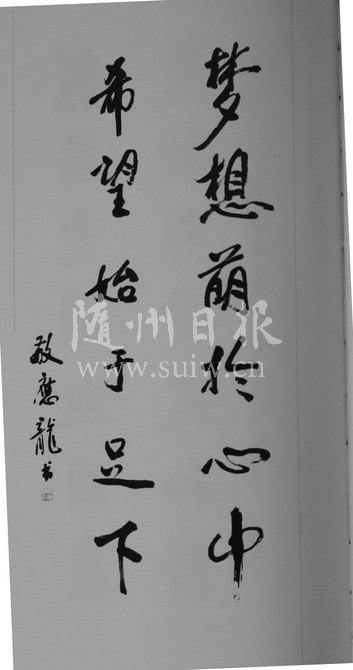 梦想萌於心中
希望始于足下
敬應龍书
随州日报
www.suiw.cn